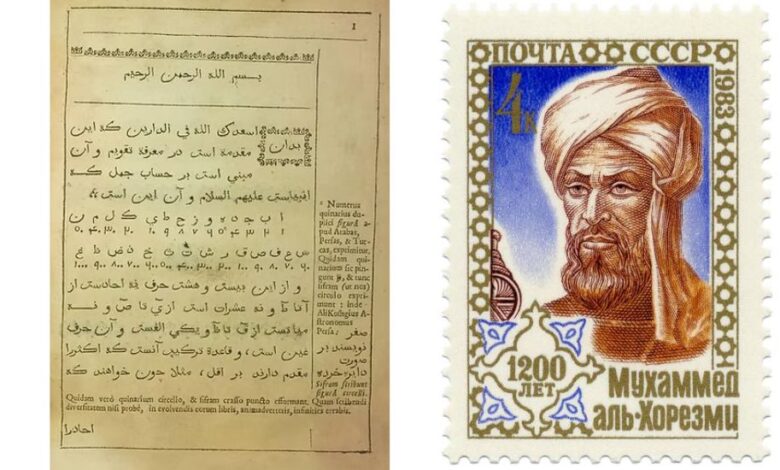 1
بسم الله الرحمن الرحيم
بدان اسعدك الله في الدارين كه اين
مقدمه است در معرفة تقويم و آن
مبني است بر حساب جمل كه
عليهم السلام و آن اين است
ا ب ج د ه و ز ح ط ي ك ل م ن
س ع ف ص ق ر ش ت ث خ ذ ض ظ غ
و از اين بيست و هشت حرف نه احادست از
آ تا ط و نه عشرات است از ي تا ص و نه
از ق تا ظ و يكي الفست و آن حرف
غين است ، و قاعده تركيب آنست كه اكثر را
مقدم دارند بر اقل ، مثلا چون خواهند كه
Numerus
quinarius du-
plici figurâ a-
pud Arabas,
Persas, & Tur-
cas, exprimitur.
Quidam qui-
narium sic pin-
gunt & tunc
sifram (ut nos)
circulo expri-
munt: Inde
Ali Kushgius A-
stronomus
Persa:
صفر
نويسند بر
صورت
دايره خرده
Sifram scribunt
figurâ circelli.
Quidam verò quinarium circello, & sifram crasso puncto efformant. Quam scribendi
diversitatem nisi probè, in evolvendis eorum libris, animadverteris, infinities errabis.
احاد را
ПОЧТА СССР
1983
4к
1200
ЛЕТ
Мухаммед
аль-Хорезми